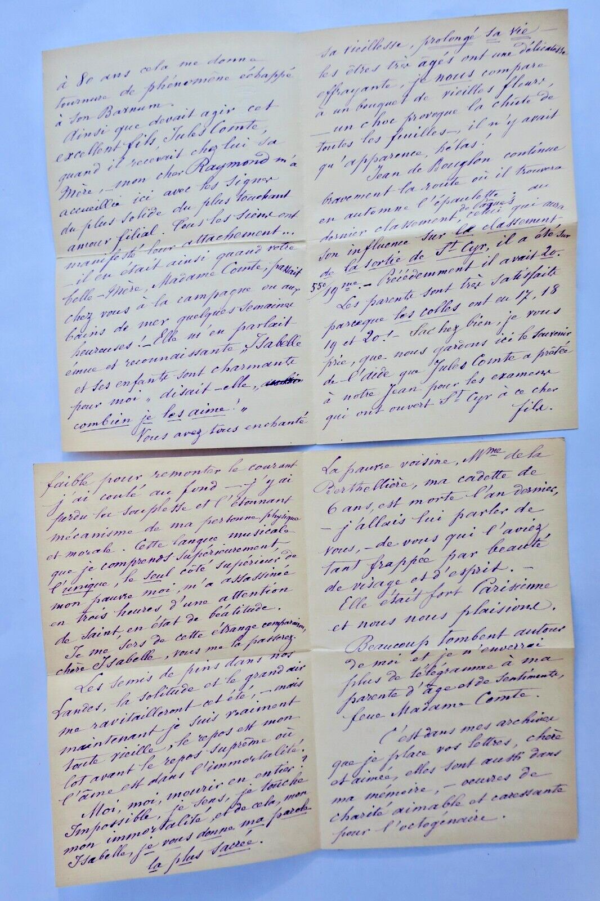 à 80 ans cela me donne
tournure de phénomène échappé
à son Barnum.
Ainsi que devait agir cet
excellent fils Jules Comte,
quand il recevait chez lui sa
Mère, mon cher Raymond m'a
accueillie ici avec les signes
du plus solide du plus touchant
amour filial. Tous les siens ont
manifesté leur attachement...
— il en était ainsi quand votre
belle-Mère, Madame Comte, passait
chez vous à la campagne ou aux
bains de mer quelques semaines
heureuses! — Elle m'en parlait
émue et reconnaissante, "Isabelle
et ses enfants sont charmants
pour moi, disait-elle,
combien je les aime!"
Vous avez tous enchanté
sa vieillesse, prolongé sa vie —
les êtres très agés ont une délicatesse
effrayante, je nous compare
à un bouquet de vieilles fleurs,
— un choc provoque la chute de
toutes les feuilles — il n'y avait
qu'apparence, hélas!
Jean de Bouglon continue
bravement la route où il trouvera
en automne l'épaulette; au
dernier classement, celui qui aura
son influence sur le classement
de la sortie de St Cyr, il a été sur
19me. — Précédemment il avait 20.
Les parents sont très satisfaits
parceque les colles ont eu 17, 18
19 et 20! — Sachez bien, je vous
prie, que nous gardons ici le souvenir
de l'aide que Jules Comte a prêtée
à notre Jean pour les examens
qui ont ouvert St Cyr à ce cher
fils.
faible pour remonter le courant
j'ai coulé au fond — j'y ai
perdu la souplesse et l'étonnant
mécanisme de ma personne physique
et morale. Cette langue musicale
que je comprends supérieurement,
l'unique, le seul côté supérieur de
mon pauvre moi, m'a assassinée
en trois heures d'une attention
de saint, en état de béatitude.
Je me sers de cette étrange comparaison,
chère Isabelle, vous me la passerez.
Les semis de pins dans nos
Landes, la solitude et le grand air
me ravitailleront cet été, — mais
maintenant je suis vraiment
toute vieille, le repos est mon
lot avant le repos suprême où
l'âme est dans l'immortalité!
Moi, moi, mourir en entier?
Impossible, je sens, je touche
mon immortalité et de cela, mon
Isabelle, je vous donne ma parole
la plus sacrée.
La pauvre voisine, Mme de la
Berthellière, ma cadette de
6 ans, est morte l'an dernier,
— j'allais lui parler de
vous, — de vous qui l'aviez
tant frappée par beauté
de visage et d'esprit. —
Elle était fort Parisienne
et nous nous plaisions.
Beaucoup tombent autour
de moi et je n'enverrai
plus de télégramme à ma
parente d'âge et de sentiments,
feue Madame Comte.
C'est dans mes archives
que je place vos lettres, chère
et aimée, elles sont aussi dans
ma mémoire, — œuvres de
charité aimable et caressante
pour l'octogénaire.